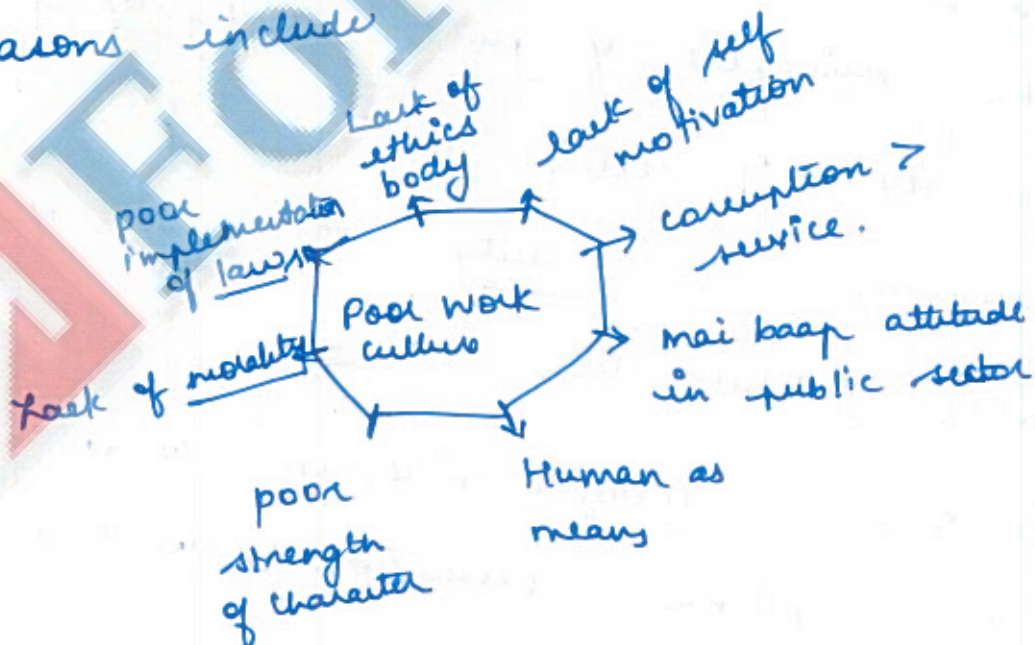 asons include
Lack of
ethics
body
lack of self
motivation
corruption >
service.
mai baap attitude
in public sector
Human as
means
poor
strength
of character
Lack of morality
poor
implementation
of laws
Poor work
culture